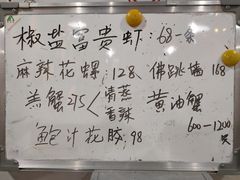 椒盐富贵虾:68一条
麻辣花螺:128、佛跳墙168
羔蟹275<清蒸 黄油蟹
香辣 600—1200
鲍汁花胶,98